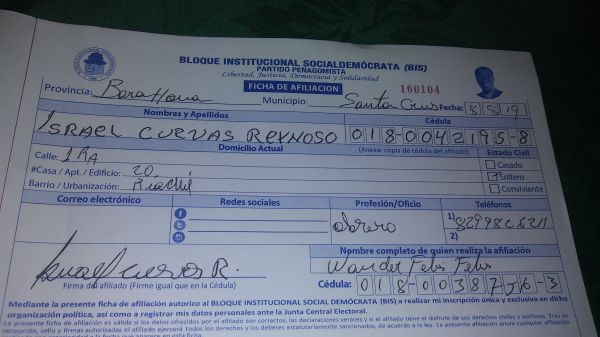 BLOQUE INSTITUCIONAL SOCIALDEMÓCRATA (BIS)
PARTIDO PEÑAGOMISTA
Libertad, Justicia, Democracia y Solidaridad
FICHA DE AFILIACION
160104
Provincia: Barahona Municipio: Santa Cruz Fecha: 8/8/19
Nombres y Apellidos Cédula
ISRAEL CUEVAS REYNOSO 018-0042195-8
Domicilio Actual (Anexar copia de cédula del afiliado) Estado Civil
Calle: 1RA Casado
#Casa / Apt. / Edificio: 20 Soltero
Barrio / Urbanización: Conviviente
Correo electrónico Redes sociales Profesión/Oficio Teléfonos
obrero 1)
2)
Nombre completo de quien realiza la afiliación
Cuevas R. Wander Felis Felis
Firma de afiliado (Firme igual que en la Cédula) Cédula: 018-0038756-3
Mediante la presente ficha de afiliación autorizo al BLOQUE INSTITUCIONAL SOCIAL DEMÓCRATA (BIS) a realizar mi inscripción única y exclusiva en dicha
organización política, así como a registrar mis datos personales ante la Junta Central Electoral.
La presente ficha de afiliación es válida si los datos ofrecidos por el afiliado son correctos, las declaraciones veraces y si el afiliado tiene el disfrute de sus derechos civiles y políticos. Tras su
recepción, sello y firmas autorizadas el afiliado ejercerá todos los derechos y los deberes estatutariamente sancionados, de acuerdo a la ley. La presente afiliación anula cualquier afiliación